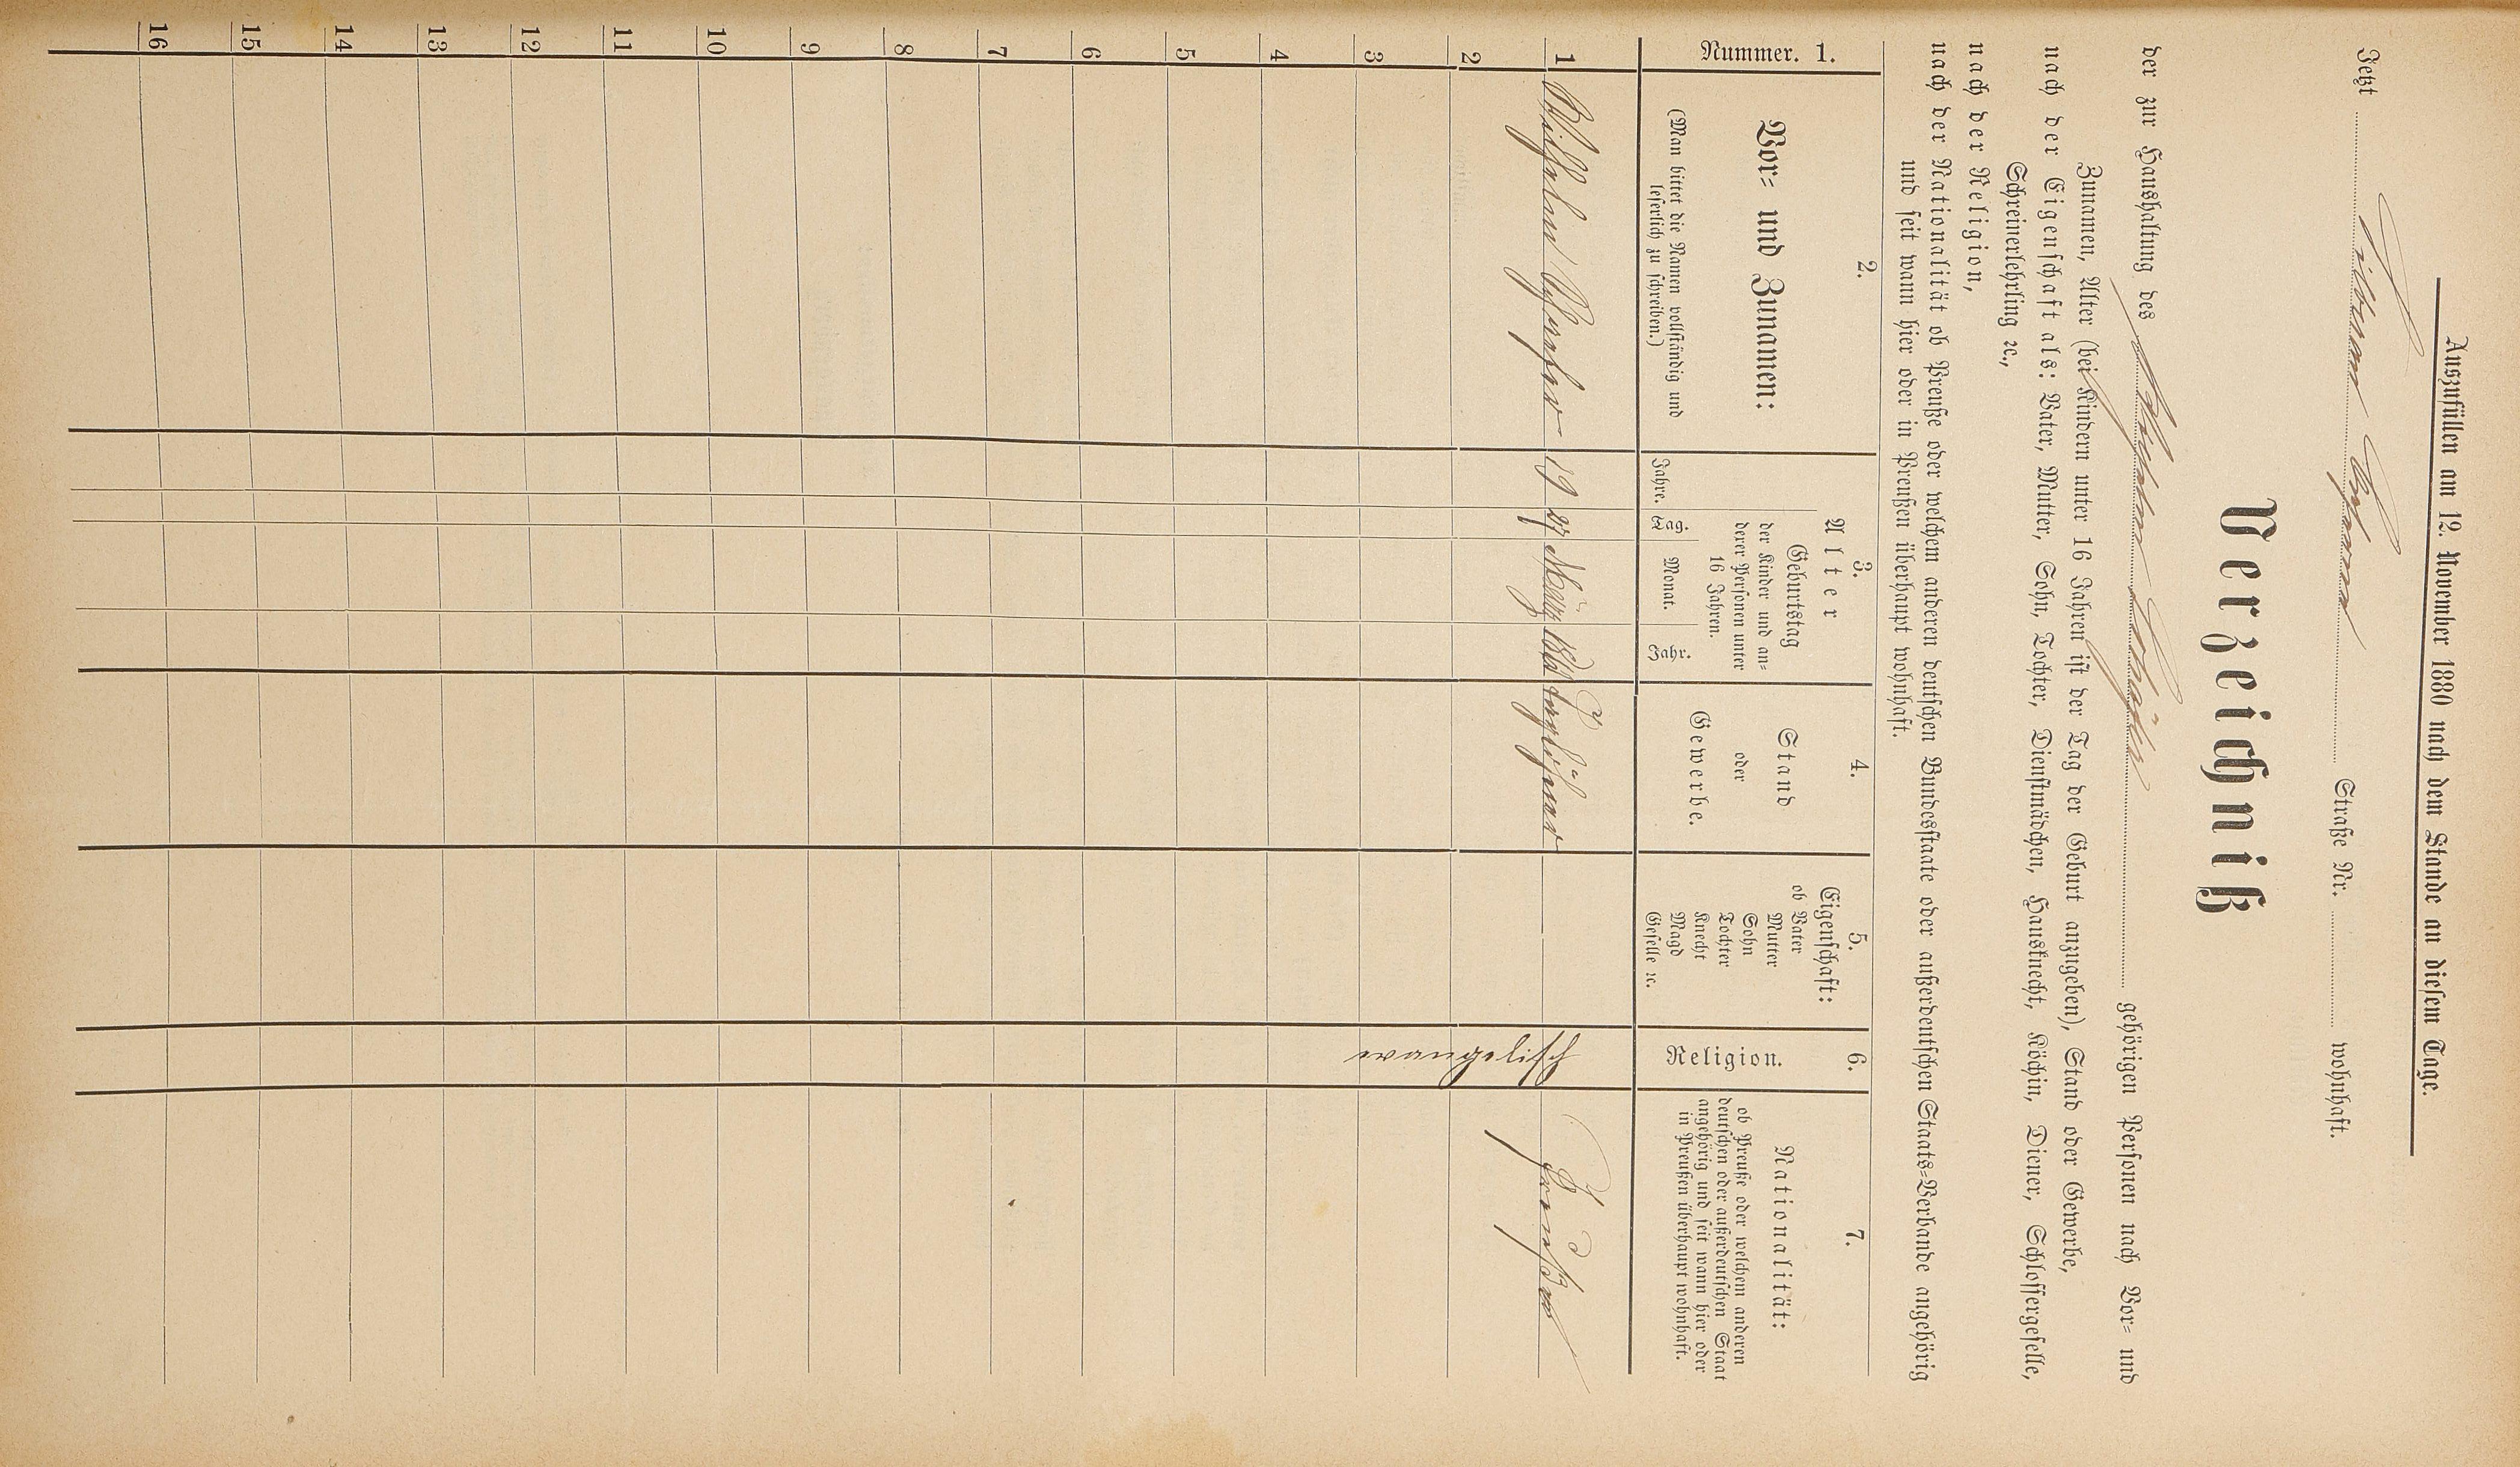 Auszufüllen am 12. November 1880 nach dem Stande an diesem Tage.
Jetzt Straße Nr. wohnhaft.
Verzeichniß
der zur Haushaltung des Wilhelm gehörigen Personen nach Vor= und
Zunamen, Alter (bei Kindern unter 16 Jahren ist der Tag der Geburt anzugeben), Stand oder Gewerbe,
nach der Eigenschaft als: Vater, Mutter, Sohn, Tochter, Dienstmädchen, Hausknecht, Köchin, Diener, Schlossergeselle,
Schreinerlehrling ꝛc.,
nach der Religion,
nach der Nationalität ob Preuße oder welchem anderen deutschen Bundesstaate oder außerdeutschen Staats=Verbande angehörig
und seit wann hier oder in Preußen überhaupt wohnhaft.
Nummer. 1.
2.
Vor= und Zunamen:
(Man bittet die Namen vollständig und
leserlich zu schreiben.)
3.
Alter
Geburtstag
der Kinder und an=
derer Personen unter
16 Jahren.
Jahre.
Tag.
Monat.
Jahr.
4.
Stand
oder
Gewerbe.
5.
Eigenschaft:
ob Vater
Mutter
Sohn
Tochter
Knecht
Magd
Geselle ꝛc.
6.
Religion.
7.
Nationalität:
ob Preuße oder welchem anderen
deutschen oder außerdeutschen Staat
angehörig und seit wann hier oder
in Preußen überhaupt wohnhaft.
1 Wilhelm 19 27 März 1861 Taglöhner evangelisch Preußen
2
3
4
5
6
7
8
9
10
11
12
13
14
15
16